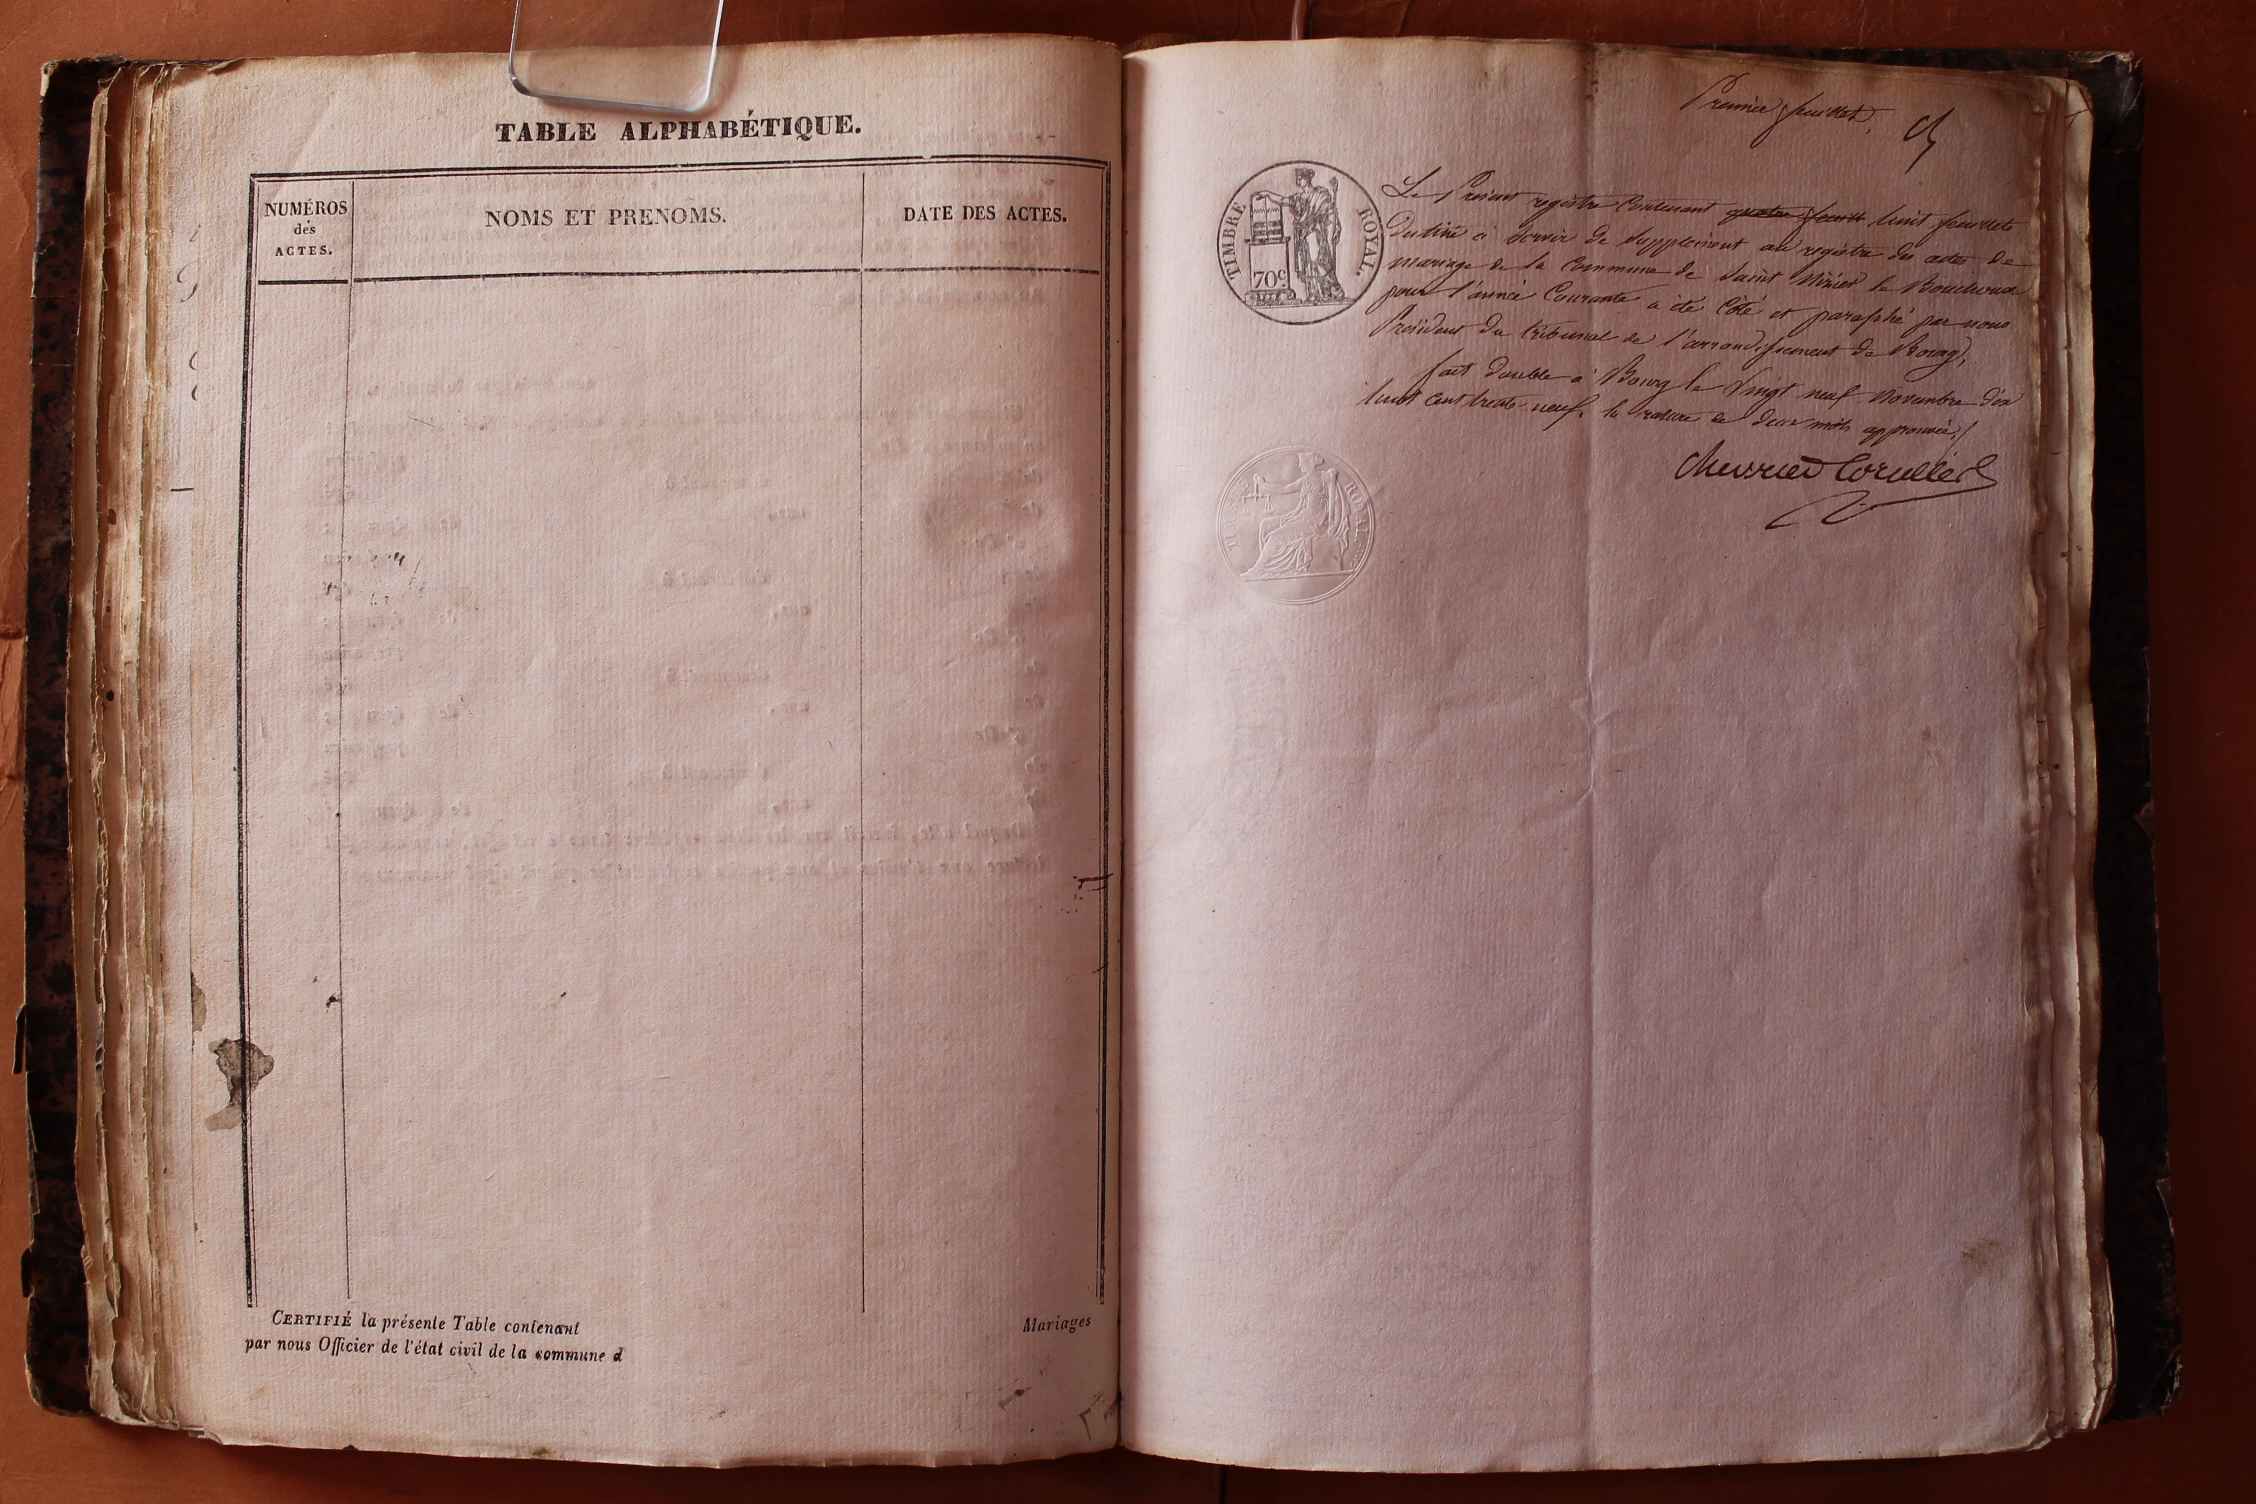 TABLE ALPHABÉTIQUE.
NUMÉROS
des
ACTES.
NOMS ET PRENOMS.
DATE DES ACTES.
CERTIFIÉ la présente Table contenant Mariages
par nous Officier de l'état civil de la commune d
Premier feuillet.
TIMBRE ROYAL.
70c.
Le Présent registre Contenant quatre feuill huit feuillets
destiné à servir de supplément au registre des actes de
mariage de la Commune de Saint Nizier le Bouchoux
pour l'année Courante a été Côté et paraphé par nous
Président du tribunal de l'arrondissement de Bourg,
fait double à Bourg le vingt neuf Novembre dix
huit cent trente-neuf. la rature de deux mots approuvée./
Chevrier Corcelles